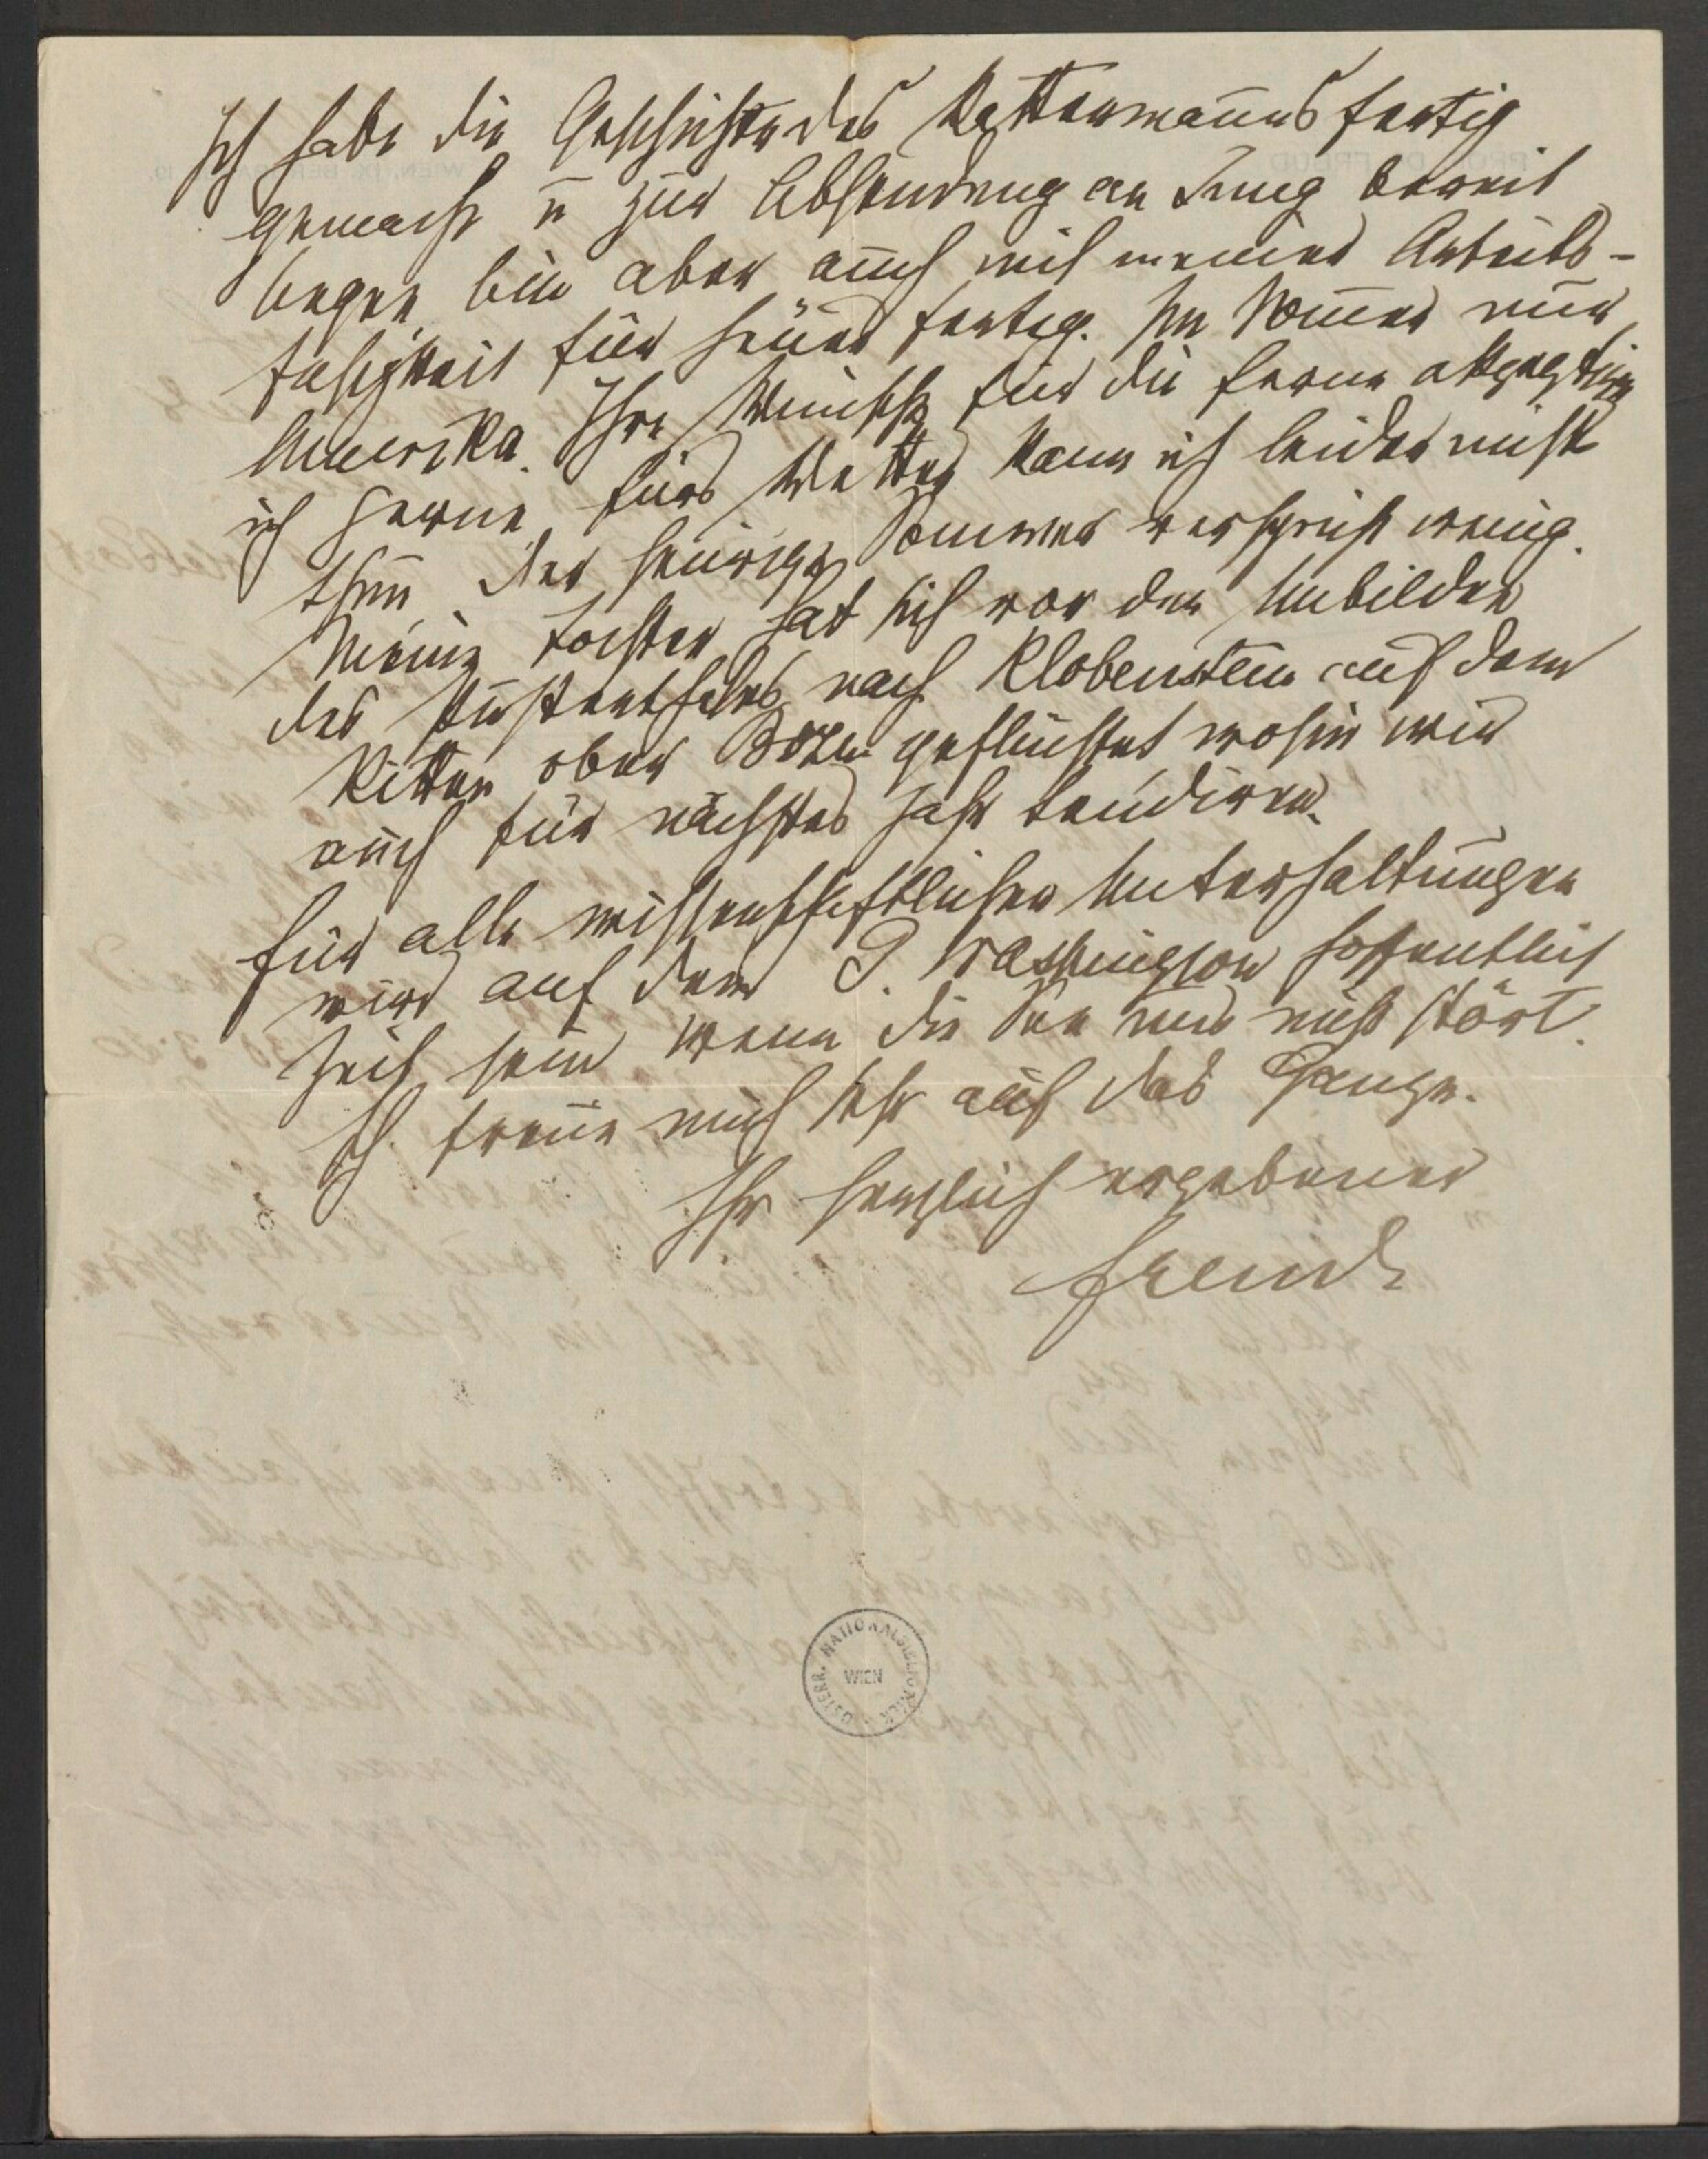 Ich habe die Geschichte des Rattenmannes fertig
gemacht u zur Absendung an Jung bereit
liegen, bin aber auch mit meiner Arbeits-
fähigkeit für heuer fertig. Im Sommer nur
Amerika. Ihre Wünsche für die Ferien akzeptire
ich gerne, fürs Wetter kann ich leider nichts
thun, der heurige Sommer verspricht wenig.
Meine Tochter hat sich vor den Unbilden
des Pustertales nach Klobenstein auf dem
Ritten ober Bozen geflüchtet, wohin wir
auch für nächstes Jahr tendiren.
Für alle wissenschaftlichen Unterhaltungen
wird auf dem G. Washington hoffentlich
Zeit sein, wenn die See uns nicht stört.
Ich freue mich sehr auf das Ganze.
Ihr herzlich ergebener
Freud
ÖSTERR. NATIONALBIBLIOTHEK
WIEN